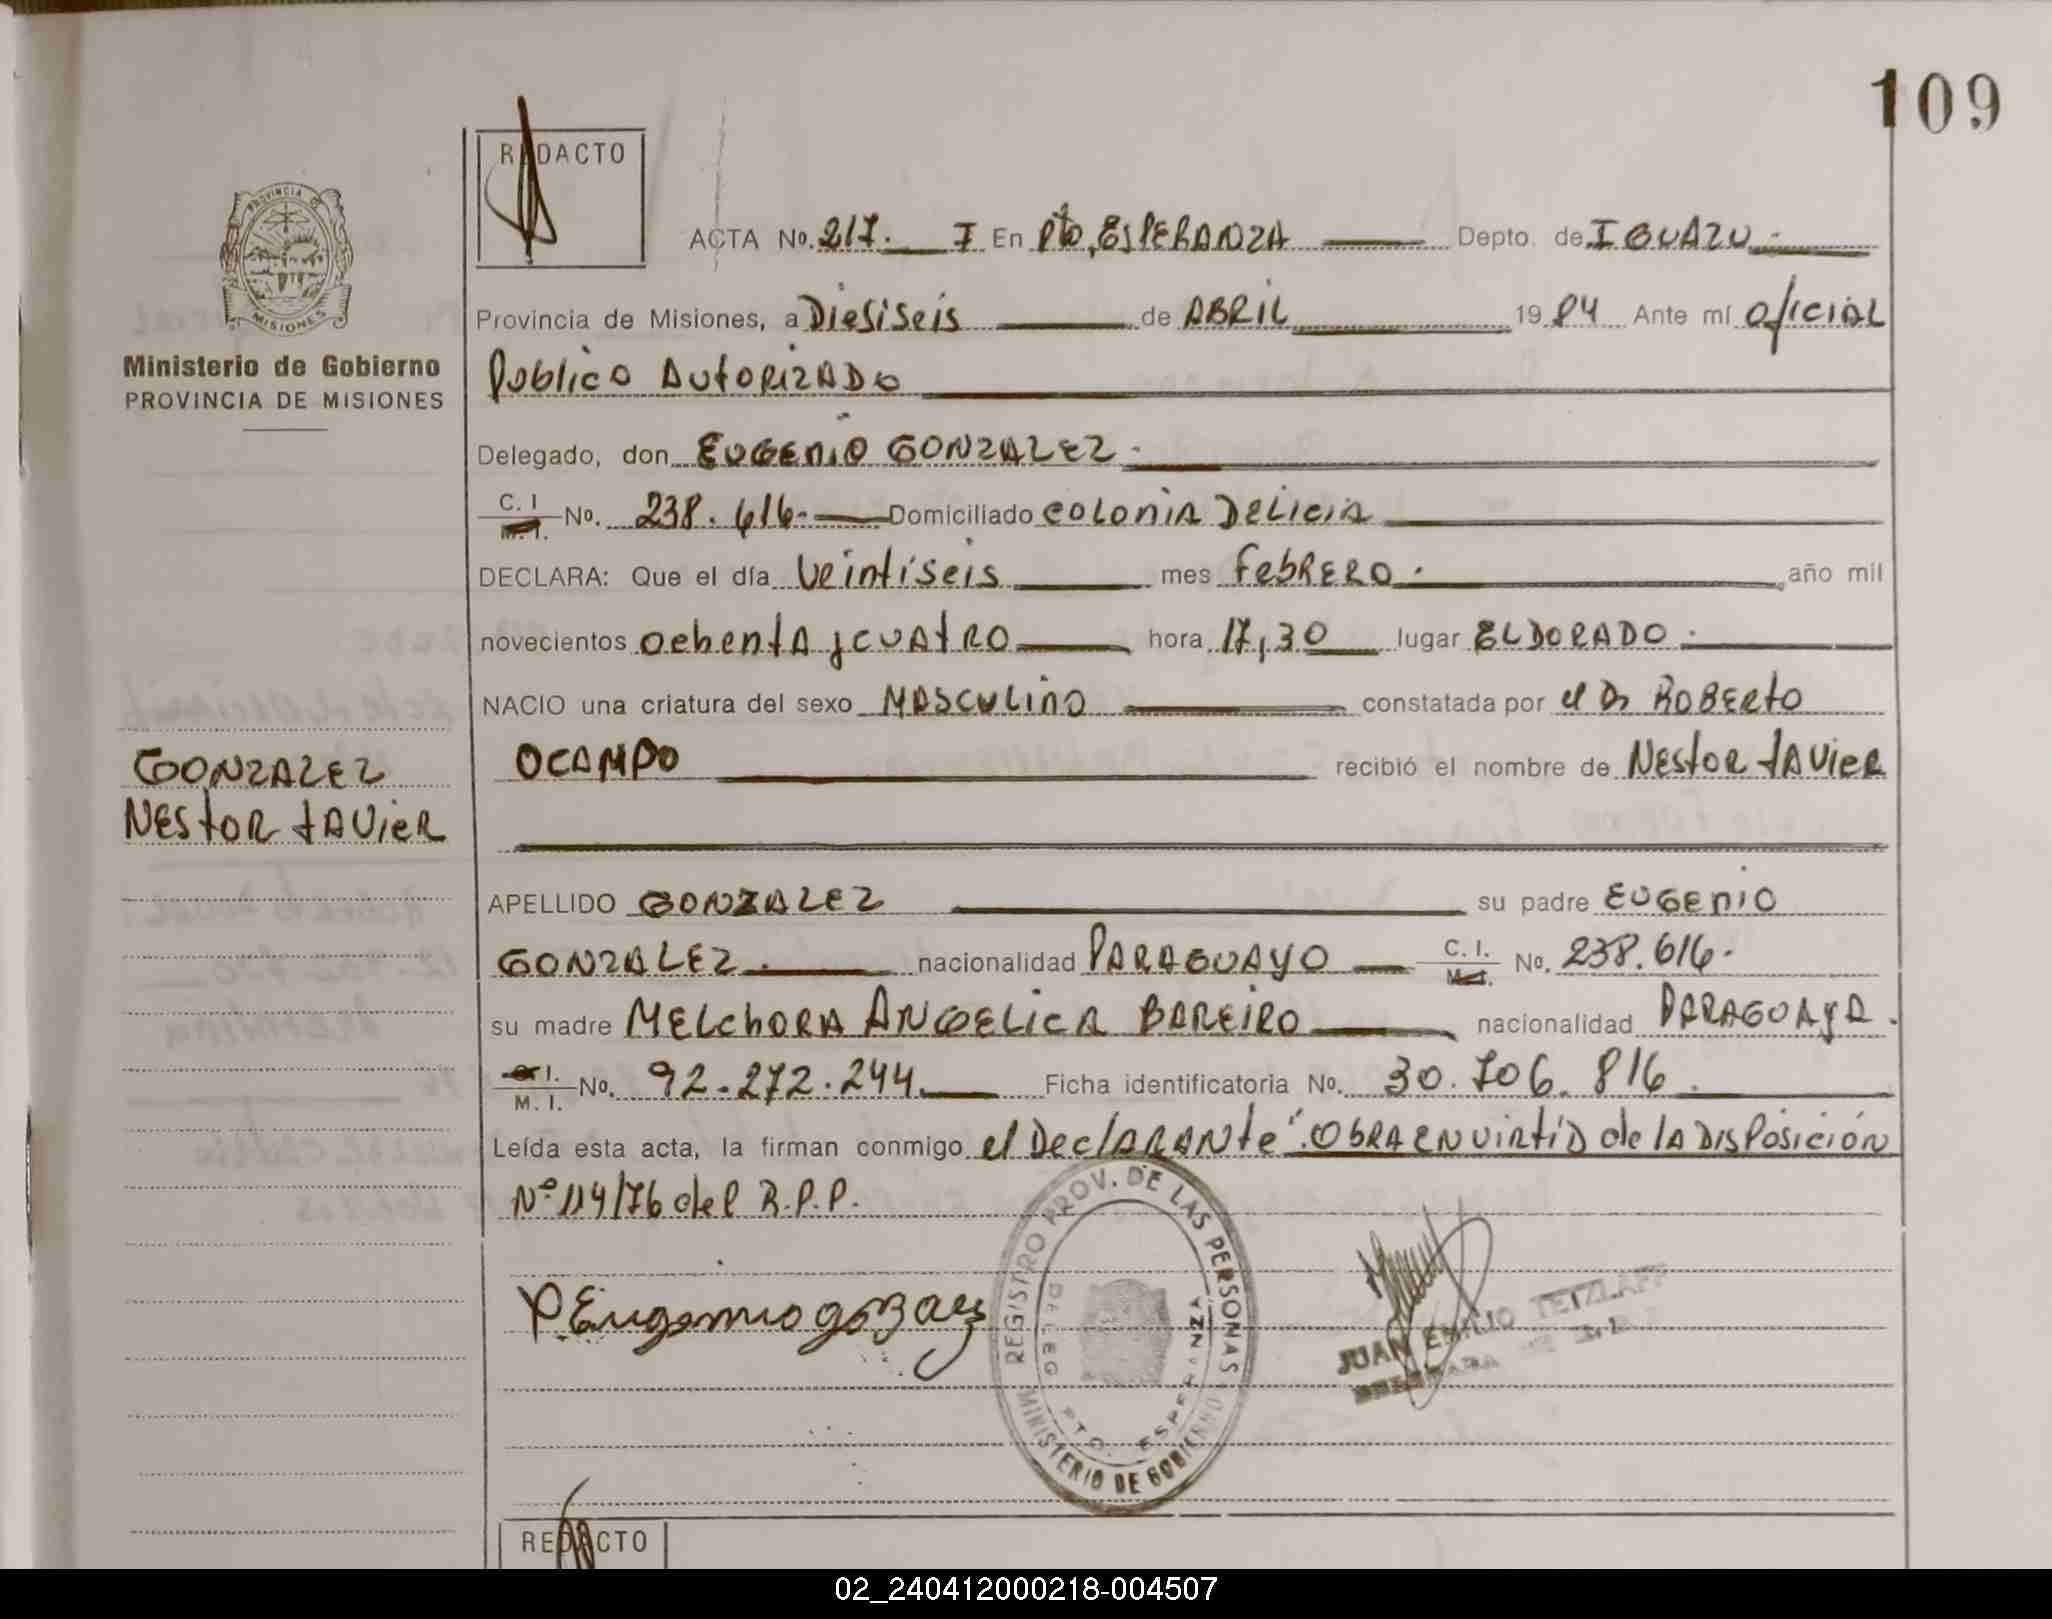 109
REDACTO
ACTA No. 217. I En Pto, ESPERANZA Depto. de IGUAZU.
Provincia de Misiones, a Diesiseis de ABRIL 1984 Ante mí oficial
Publico AUTORIZADO
PROVINCIA
MISIONES
Ministerio de Gobierno
PROVINCIA DE MISIONES
Delegado, don EUGENIO GONZALEZ.
C. I. M. I. No. 238.616. Domiciliado COLONIA DELICIA
DECLARA: Que el día Veintiseis mes FebRERO. año mil
novecientos ochentA y CUAtRO hora 17,30 lugar ELDORADO.
NACIO una criatura del sexo MASCULINO constatada por el Dr ROBERto
OCAMPO recibió el nombre de NEStOR JAVieR
GONZALEZ
NEStOR JAVieR
APELLIDO GONZALEZ su padre EUGENIO
GONZALEZ. nacionalidad PARAGUAYO C. I. M. I. No. 238.616.
su madre MELChORA ANGELICA BAREIRO nacionalidad PARAGUAyA.
C. I. M. I. No. 92-272.244. Ficha identificatoria No. 30.706.816.
Leída esta acta, la firman conmigo el DeclARANte". OBRA EN VIRtUD de lA DISPosición
Nº 114/76 del R.P.P.
Eugenio
REGISTRO PROV. DE LAS PERSONAS
DELEG. PTO. ESPERANZA
MINISTERIO DE GOBIERNO
JUAN EMILIO TETZLAFF
REDACTO
02_240412000218-004507